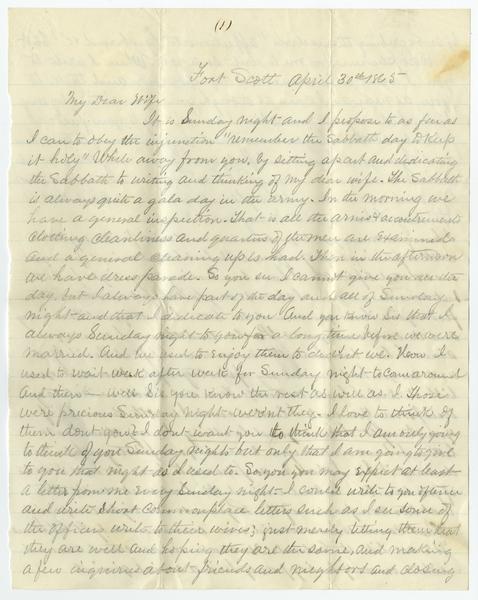 (1)
Fort Scott April 30th 1865
My Dear Wife
It is Sunday night and I propose to as far as
I can to obey the injunction "remember the Sabbath day to keep
it holy" While away from you, by setting apart and dedicating
the Sabbath to writing and thinking of my dear wife. The Sabbath
is always quite a gala day in the army. In the morning we
have a general inspection. That is all the arms & accoutrements
clothing cleanliness and quarters of the men are examined
and a general cleaning up is had. Then in the afternoon
we have dress parade. So you see I cannot give you all the
day, but I always have part of the day and all of Sunday
night and that I dedicate to you And you know Sis that I
always Sunday night to you for a long time before we were
married. And we used to enjoy them to didn't we. How I
used to wait week after week for Sunday night to come around
And then — well Sis you know the rest as well as I. Those
were precious Sunday nights weren't they. I love to think of
them dont you? I dont want you to think that I am only going
to think of you Sunday nights but only that I am going to give
to you that night as I used to. So you may expect at least
a letter from me every Sunday night. I could write to you oftener
and write short commonplace letters such as I see some of
the officers write to their wives; just merely letting them know
they are well and hoping they are the same, and making
a few inquiries about friends and neighbors and closing